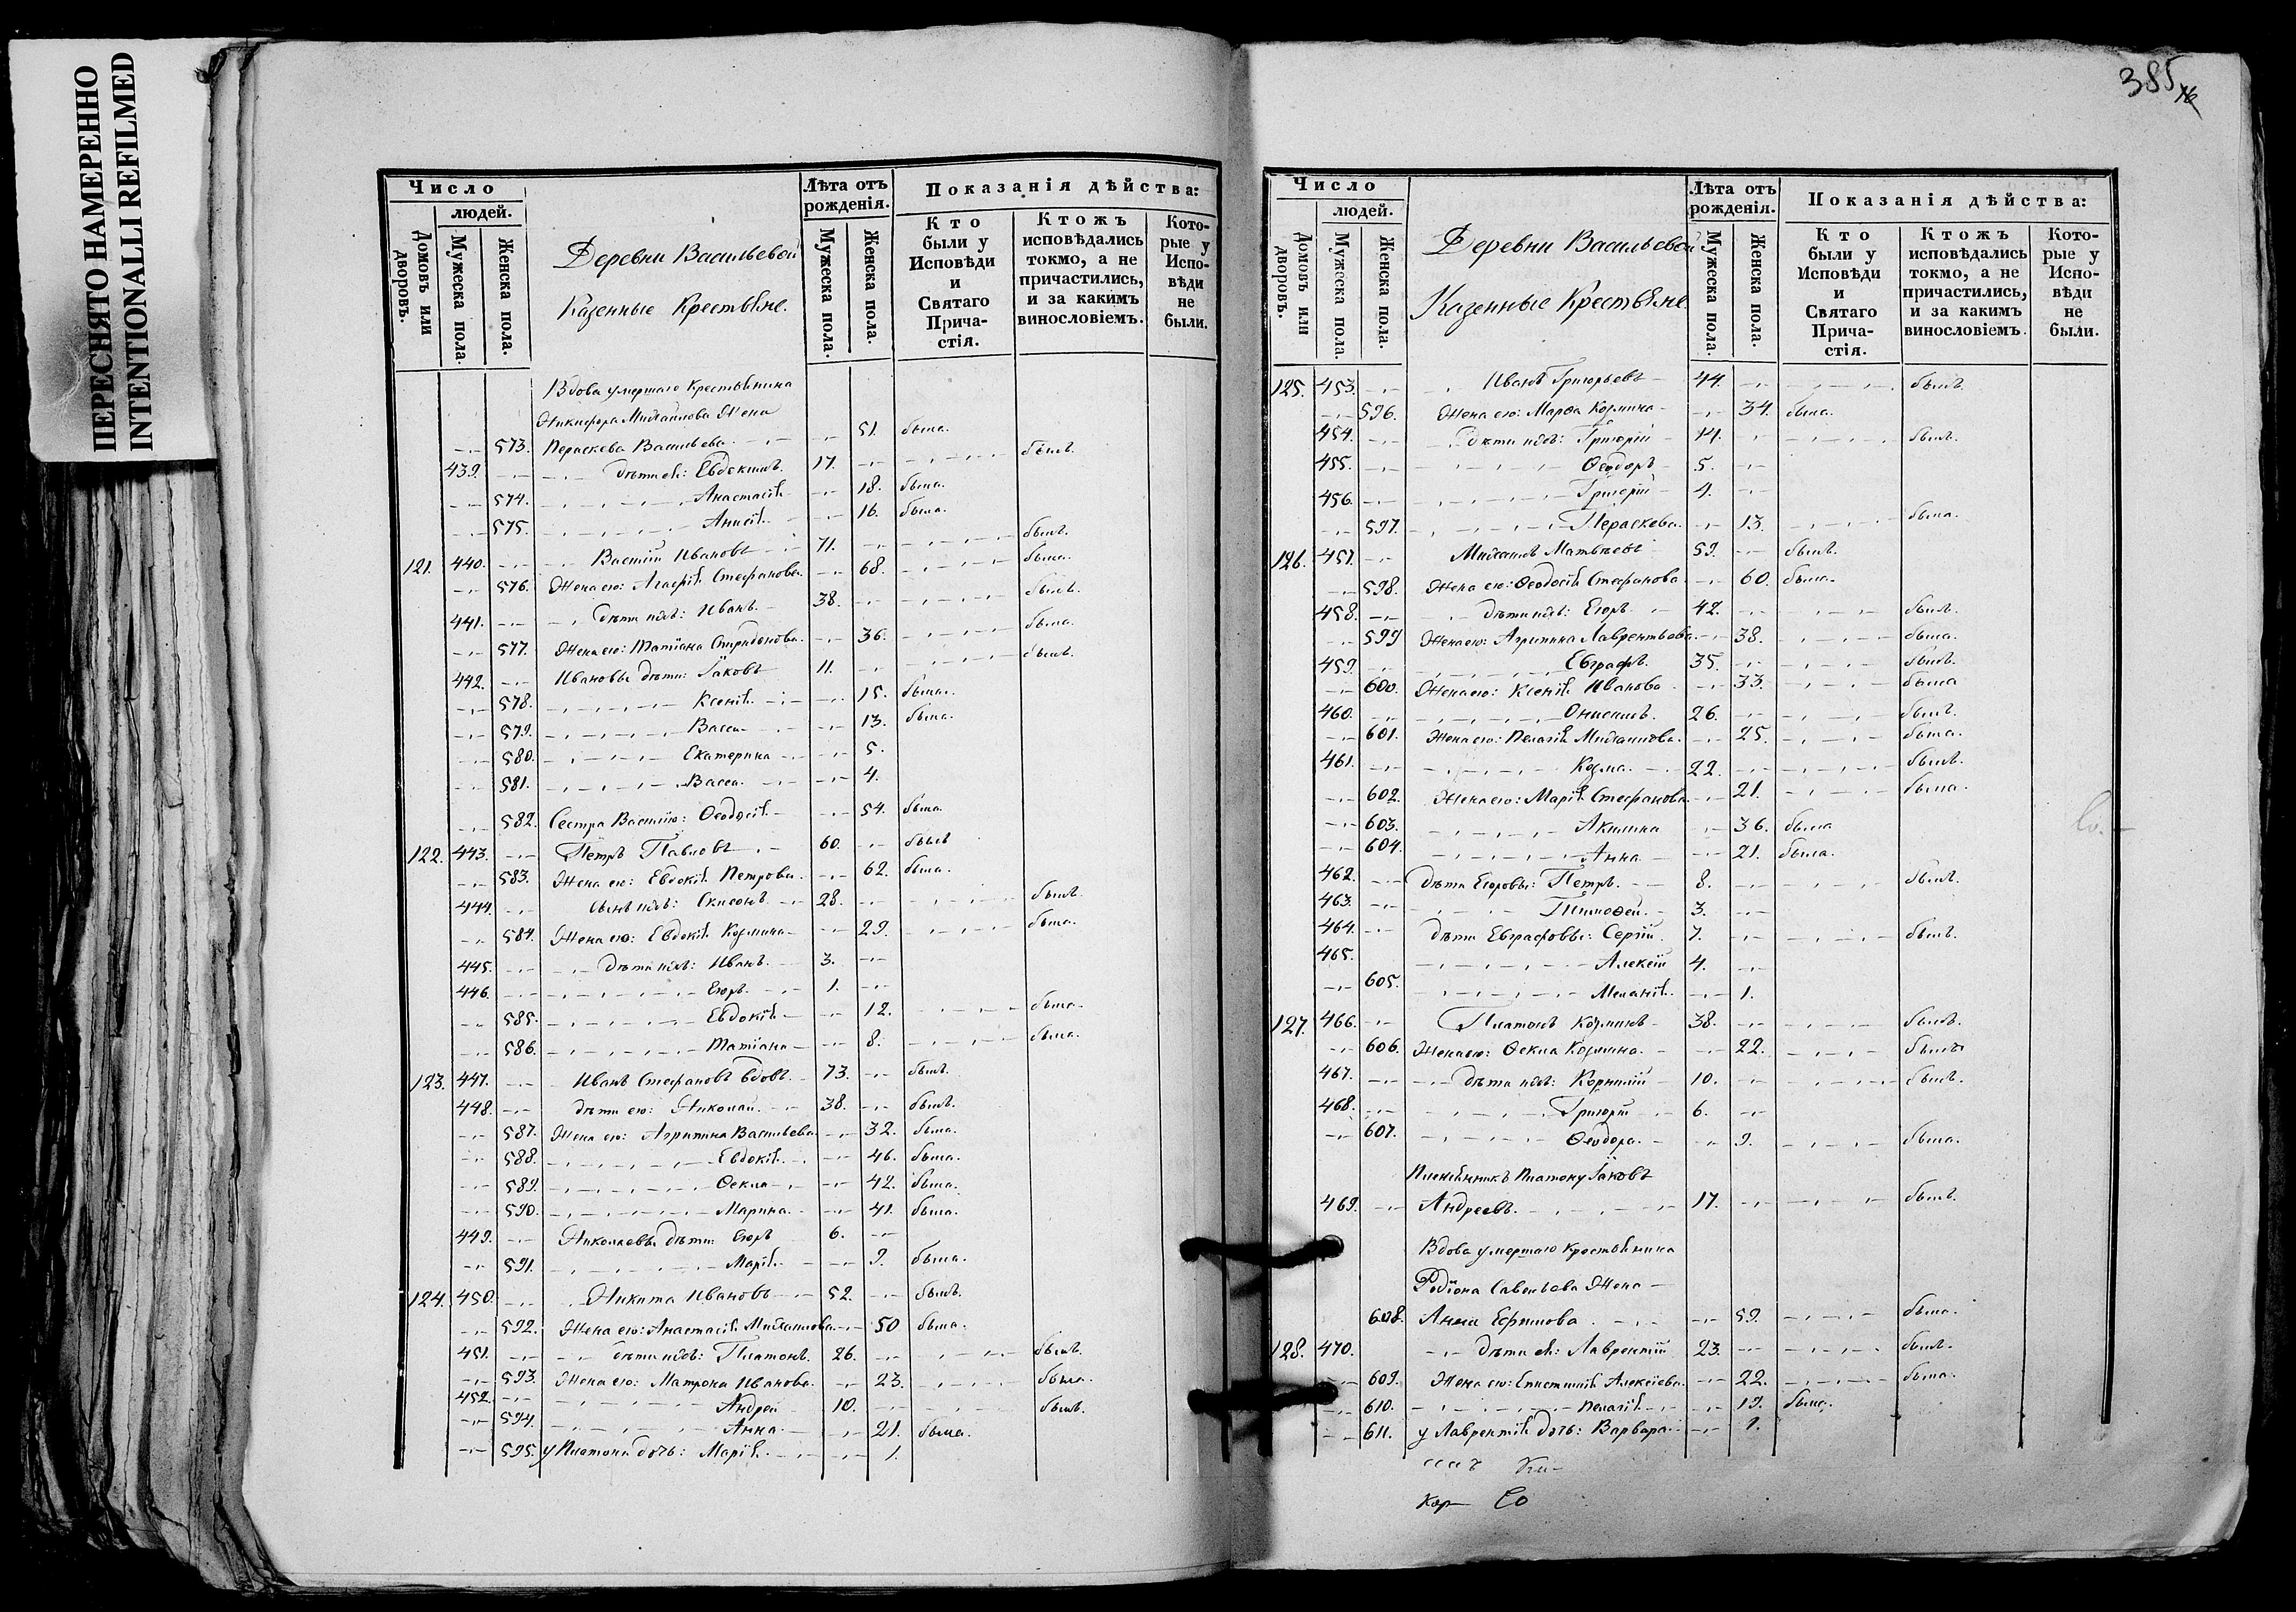 ПЕРЕСНЯТО НАМЕРЕННО
INTENTIONALLI REFILMED
Число
людей.
Домовъ или дворовъ.
Мужеска пола.
Женска пола.
Деревни Васильевой
Казенные Крестьяне.
Лѣта отъ рожденія.
Мужеска пола.
Женска пола.
Показанія дѣйства:
Кто были у Исповѣди и Святаго Причастія.
Ктожъ исповѣдались токмо, а не причастились, и за какимъ винословіемъ.
Которые у Исповѣди не были.
Вдова умершаго Крестьянина
Никифора Михайлова Жена
573. Параскева Васильева 51. была.
439. дѣти ея: Евдокимъ. 17. былъ.
574. Анастасія 18. была.
575. Анисія 16. была.
121. 440. Василій Ивановъ 71. былъ.
576. Жена его: Агафія Стефанова. 68. была.
441. дѣти ихъ: Иванъ. 38. былъ.
577. Жена его: Татіана Спиридонова. 36. была.
442. Ивановы дѣти: Іаковъ 11. былъ.
578. Ксенія 15. была.
579. Васса 13. была.
580. Екатерина 5.
581. Васса 4.
582. Сестра Василію: Ѳеодосія 54. была.
122. 443. Петръ Павловъ 60. былъ
583. Жена его: Евдокія Петрова. 62. была.
444. сынъ ихъ: 28. былъ.
584. Жена его: Евдокія Козмина 29. была.
445. дѣти ихъ: Иванъ. 3.
446. Егоръ. 1.
585. Евдокія 12. была.
586. Татіана 8. была.
123. 447. Иванъ Стефановъ вдовъ. 73. былъ.
448. дѣти его: Николай. 38. былъ.
587. Жена его: Агрипина Васильева. 32. была.
588. Евдокія 46. была.
589. Ѳекла 42. была.
590. Марина. 41. была.
449. Николаевы дѣти: Егоръ 6.
591. Марія. 9. была.
124. 450. Никита Ивановъ 52. былъ.
592. Жена его: Анастасія Михайлова. 50 была.
451. дѣти ихъ: Платонъ. 26. былъ.
593. Жена его: Матрона Иванова. 23. была.
452. Андрей 10. былъ.
594. Анна 21. была.
595. у Платона дочь: Марія. 1.
385
Число
людей.
Домовъ или дворовъ.
Мужеска пола.
Женска пола.
Деревни Васильевой
Казенные Крестьяне.
Лѣта отъ рожденія.
Мужеска пола.
Женска пола.
Показанія дѣйства:
Кто были у Исповѣди и Святаго Причастія.
Ктожъ исповѣдались токмо, а не причастились, и за какимъ винословіемъ.
Которые у Исповѣди не были.
125. 453. Иванъ Григорьевъ 44. былъ.
596. Жена его: Марѳа Козмина 34. была.
454. дѣти ихъ: Григорій 14. былъ.
455. Ѳеодоръ 5.
456. Григорій 4.
597. Параскева. 13. была.
126. 457. Михаилъ Матвѣевъ 59. былъ.
598. Жена его: Ѳеодосія Стефанова 60. была.
458. дѣти ихъ: Егоръ 42. былъ.
599 Жена его: Агрипина Лаврентьева. 38. была.
459. Евграфъ. 35. былъ.
600. Жена его: Ксенія Иванова 33. была
460. Онисимъ. 26. былъ.
601. Жена его: Пелагія Михайлова. 25. была.
461. Козма. 22. былъ.
602. Жена его: Марія Стефанова. 21. была.
603. Акилина 36. была
604. Анна 21. была.
462. дѣти Егоровы: Петръ. 8. былъ.
463. Тимоѳей. 3.
464. дѣти Евграфовы: Сергій. 7. былъ.
465. Алексій 4.
605. Меланія. 1.
127. 466. Платонъ Козминъ 38. былъ.
606. Жена его: Ѳекла Козмина. 22. была
467. дѣти ихъ: Корнилій 10. былъ.
468. Григорій 6.
607. Ѳеодора. 9. была.
Племянникъ Платону Іаковъ
469. Андреевъ. 17. былъ.
Вдова умершаго Крестьянина
Родіона Савельева Жена
608. Анна Ефимова 59. была.
128. 470. дѣти ея: Лаврентій 23. былъ.
609. Жена его: Епистимія Алексіева. 22. была.
610. Пелагія 19. была.
611. у Лаврентія дочь: Варвара 1.